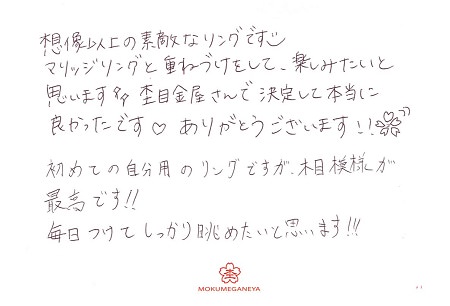 想像以上の素敵なリングです
マリッジリングと重ねづけをして、楽しみたいと
思います 杢目金屋さんで決定して本当に
良かったです♡ ありがとうございます!!
初めての自分用のリングですが、木目模様が
最高です!!
毎日つけてしっかり眺めたいと思います!!!
杢
MOKUMEGANEYA